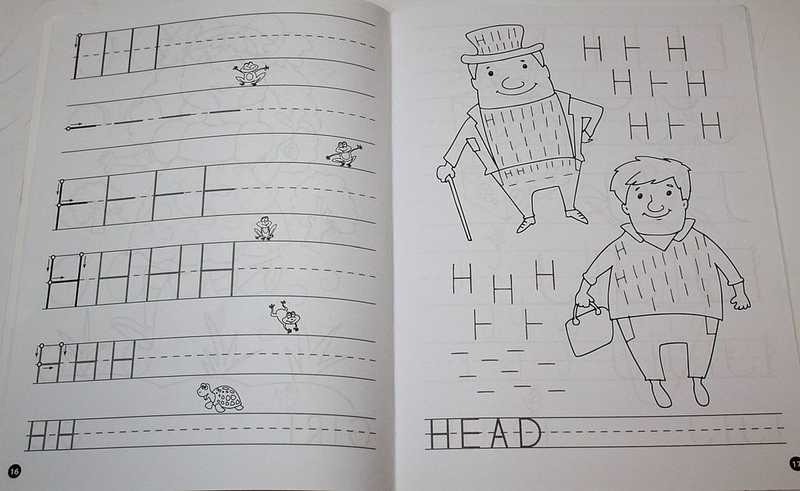 H H H H
H H H
H H
16
H H
H H
H H
H
H
H
H
H H H
HEAD
17